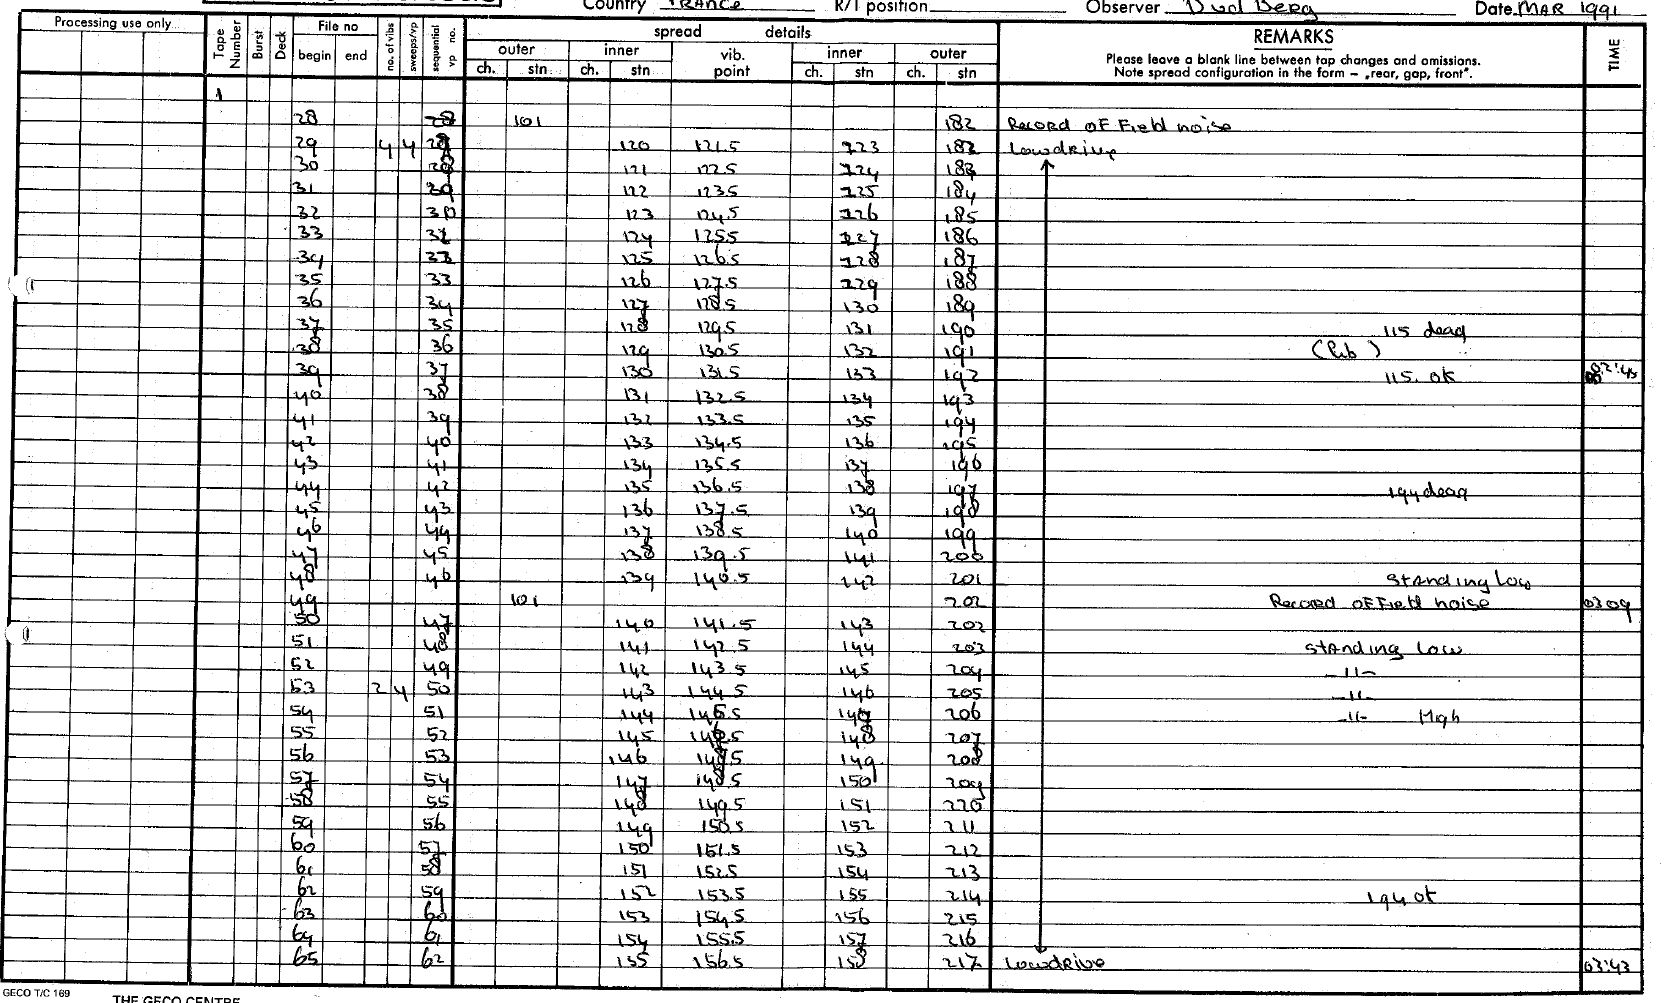 Country FRANCE R/I position Observer Date MAR 1991
Processing use only
Tape Number Burst Deck File no begin end no. of vibs sweeps/vp sequential vp no.
spread details
outer inner vib. point inner outer
ch. stn ch. stn ch. stn ch. stn
REMARKS
Please leave a blank line between tap changes and omissions.
Note spread configuration in the form – „rear, gap, front".
TIME
1
28 28 101 182 Record of Field noise
29 4 4 28 120 121.5 123 182 Lowdrive
30 121 122.5 124 183
31 29 122 123.5 125 184
32 30 123 124.5 126 185
33 31 124 125.5 127 186
34 124 126.5 128 187
35 33 126 127.5 129 188
36 34 127 128.5 130 189
37 35 128 129.5 131 190 115 dead
38 36 129 130.5 132 191
39 37 130 131.5 133 192 115. OK 02:45
40 38 131 132.5 134 193
41 39 132 133.5 135 194
42 40 133 134.5 136 195
43 41 134 135.5 137 196
44 42 135 136.5 138 197 194 dead
45 43 136 137.5 139 198
46 44 137 138.5 140 199
47 45 138 139.5 141 200
48 46 139 140.5 142 201 Standing Low
49 101 202 Record of Field noise 0309
50 47 140 141.5 143 202
51 48 141 142.5 144 203 Standing Low
52 49 142 143.5 145 204 -11-
53 2 4 50 143 144.5 146 205 -11-
54 51 144 145.5 147 206 -11- High
55 52 145 146.5 148 207
56 53 146 147.5 149 208
57 54 147 148.5 150 209
58 55 148 149.5 151 220
59 56 149 150.5 152 211
60 57 150 151.5 153 212
61 58 151 152.5 154 213
62 59 152 153.5 155 214 194 OK
63 60 153 154.5 156 215
64 61 154 155.5 157 216
65 62 155 156.5 158 217 Lowdrive 03:43
GECO T/C 169
THE GECO CENTRE